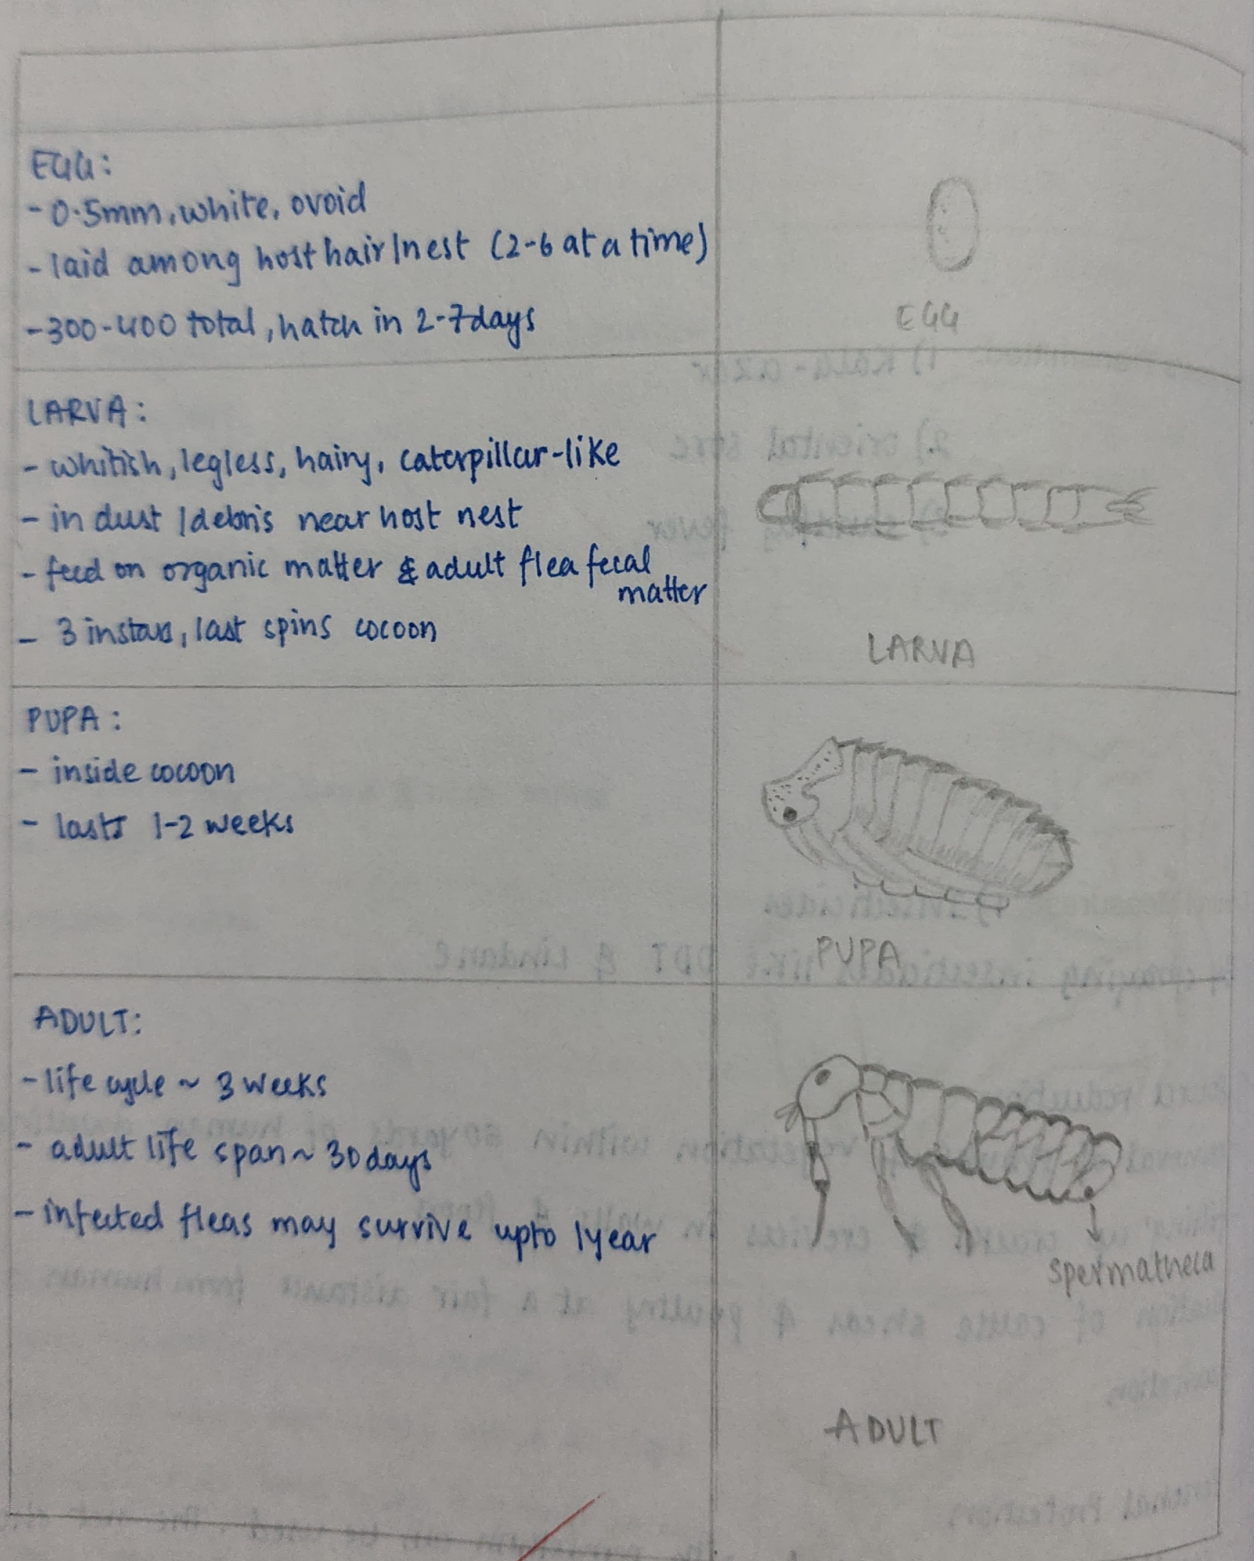 EGG:
- 0.5mm, white, ovoid
- laid among host hair/nest (2-6 at a time)
- 300-400 total, hatch in 2-7days
EGG
LARVA:
- whitish, legless, hairy, caterpillar-like
- in dust/debris near host nest
- feed on organic matter & adult flea fecal
matter
- 3 instars, last spins cocoon
LARVA
PUPA:
- inside cocoon
- lasts 1-2 weeks
PUPA
ADULT:
- life cycle ~ 3 weeks
- adult life span ~ 30 days
- infected fleas may survive upto 1year
spermatheca
ADULT